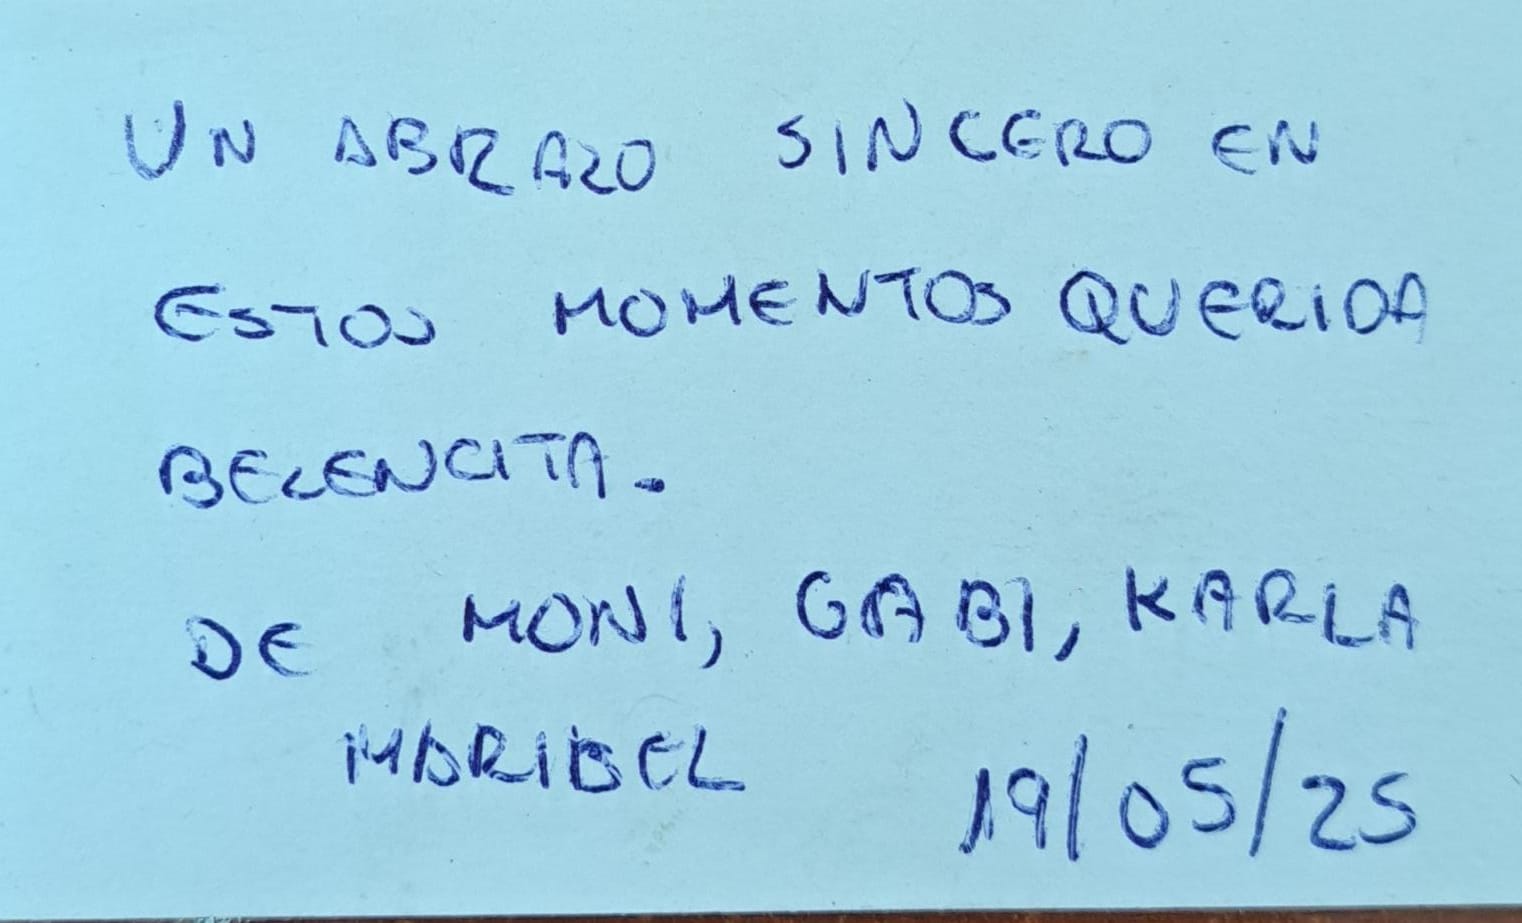 UN ABRAZO SINCERO EN
ESTOS MOMENTOS QUERIDA
BELENCITA.
DE MONI, GABI, KARLA
MARIBEL 19/05/25